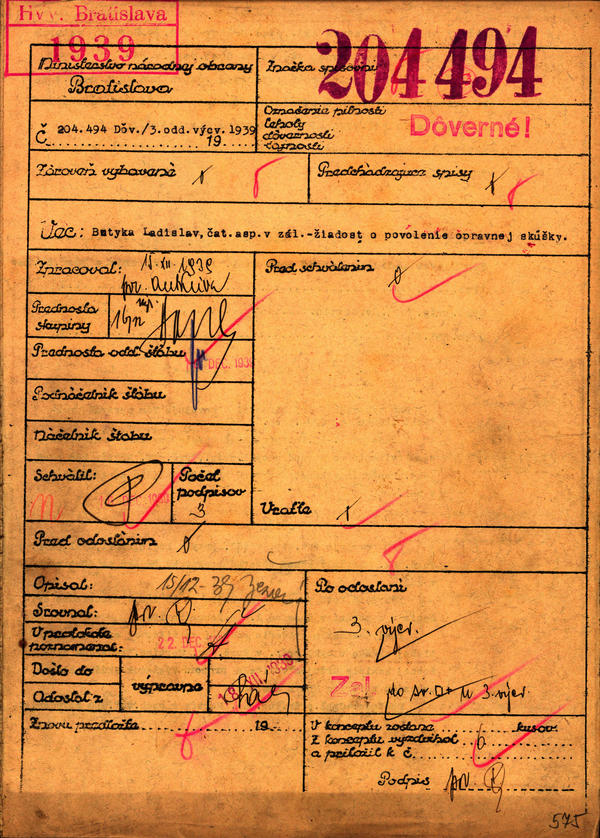 Hvv. Bratislava
1939
Ministerstvo národnej obrany
Bratislava
Značka spisovni
204494
Č. 204.494 Dôv./3.odd.výcv.1939
19
Označenie pilnosti
lehoty
dôvernosti
tajnosti
Dôverné!
Zároveň vybavené
Predchádzajúce spisy
Vec: Butyka Ladislav, čat.asp.v zál.-žiadosť o povolenie opravnej skúšky.
Zpracoval:
15. XII. 1939
Pred schválením
Prednosta
skupiny
Prednosta odd. štábu
DEC. 1939
Podnáčelník štábu
Náčelník štábu
Schválil:
Počet
podpisov
3
Vraťte
Pred odoslaním
Opísal: 15/12-39
Po odoslaní
Srovnal: pr.
V protokole
poznamenal:
22. DEC
3. výcv.
Došlo do
Odoslať z
výpravne
18. XII. 1939
3. výcv.
Znovu predložiť
19
V konceptu zostane kusov
Z konceptu vyzdvihol
a priložil k č.
Podpis
575